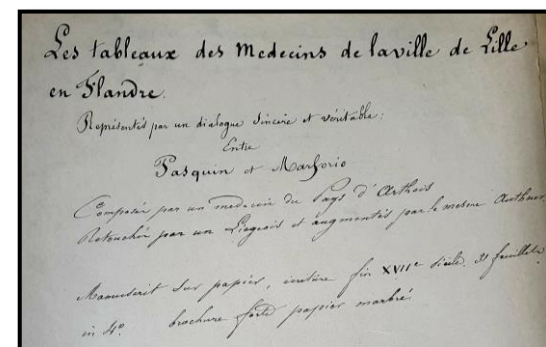 Les tableaux des Medecins de la ville de Lille
en Flandre.
Représentés par un dialogue sincere et véritable:
Entre
Pasquin et Marforio
Composés par un medecin du Pays d'Arthois
Retouchés par un Liegeois et augmentés par le mesme Autheur
Manuscrit sur papier, écriture fin XVIIe siècle, feuillets
in 4o. brochure forte papier marbré.